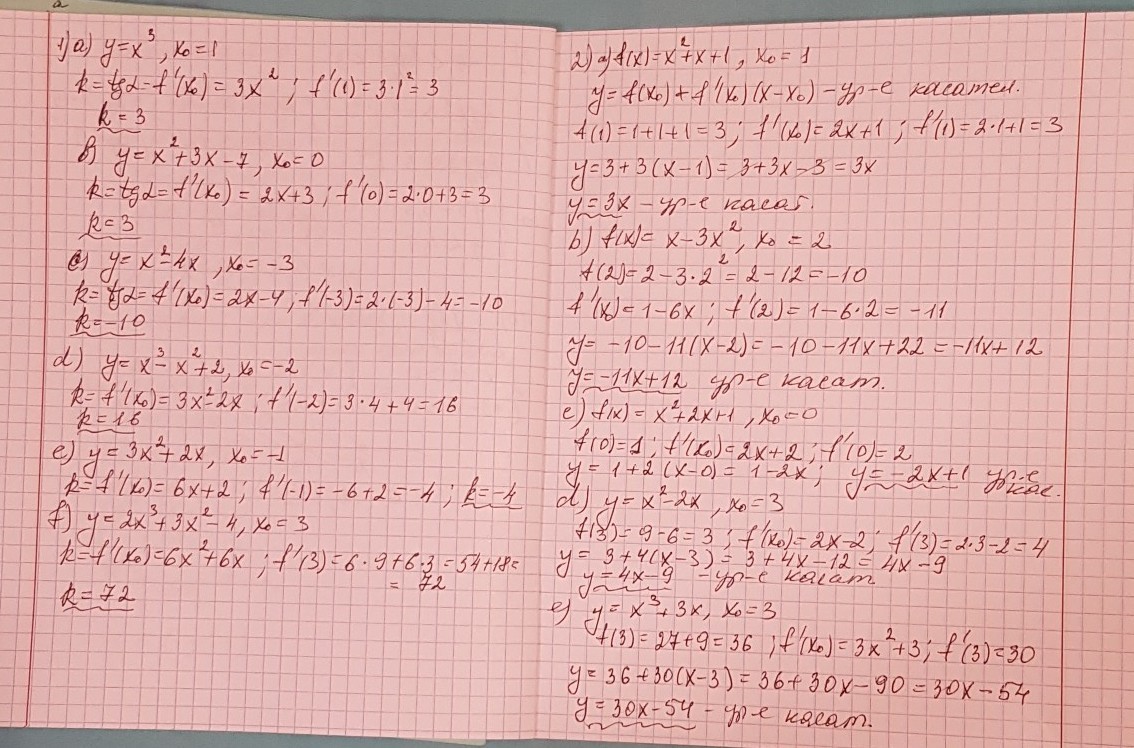 1) a) y=x³, x₀=1
k=tgα=f'(x₀)=3x²; f'(1)=3·1²=3
k=3
b) y=x²+3x-7, x₀=0
k=tgα=f'(x₀)=2x+3; f'(0)=2·0+3=3
k=3
c) y=x²-4x, x₀=-3
k=tgα=f'(x₀)=2x-4; f'(-3)=2·(-3)-4=-10
k=-10
d) y=x³-x²+2, x₀=-2
k=f'(x₀)=3x²-2x; f'(-2)=3·4+4=16
k=16
e) y=3x²+2x, x₀=-1
k=f'(x₀)=6x+2; f'(-1)=-6+2=-4; k=-4
f) y=2x³+3x²-4, x₀=3
k=f'(x₀)=6x²+6x; f'(3)=6·9+6·3=54+18=
=72
k=72
2) a) f(x)=x²+x+1, x₀=1
y=f(x₀)+f'(x₀)(x-x₀)-ур-е касател.
f(1)=1+1+1=3; f'(x₀)=2x+1; f'(1)=2·1+1=3
y=3+3(x-1)=3+3x-3=3x
y=3x-ур-е касат.
b) f(x)=x-3x², x₀=2
f(2)=2-3·2²=2-12=-10
f'(x₀)=1-6x; f'(2)=1-6·2=-11
y=-10-11(x-2)=-10-11x+22=-11x+12
y=-11x+12 ур-е касат.
c) f(x)=x²+2x+1, x₀=0
f(0)=1; f'(x₀)=2x+2; f'(0)=2
y=1+2(x-0)=1-2x; y=-2x+1 ур-е
кас.
d) y=x²-2x, x₀=3
f(3)=9-6=3; f'(x₀)=2x-2; f'(3)=2·3-2=4
y=3+4(x-3)=3+4x-12=4x-9
y=4x-9 -ур-е касат
e) y=x³+3x, x₀=3
f(3)=27+9=36; f'(x₀)=3x²+3; f'(3)=30
y=36+30(x-3)=36+30x-90=30x-54
y=30x-54-ур-е касат.